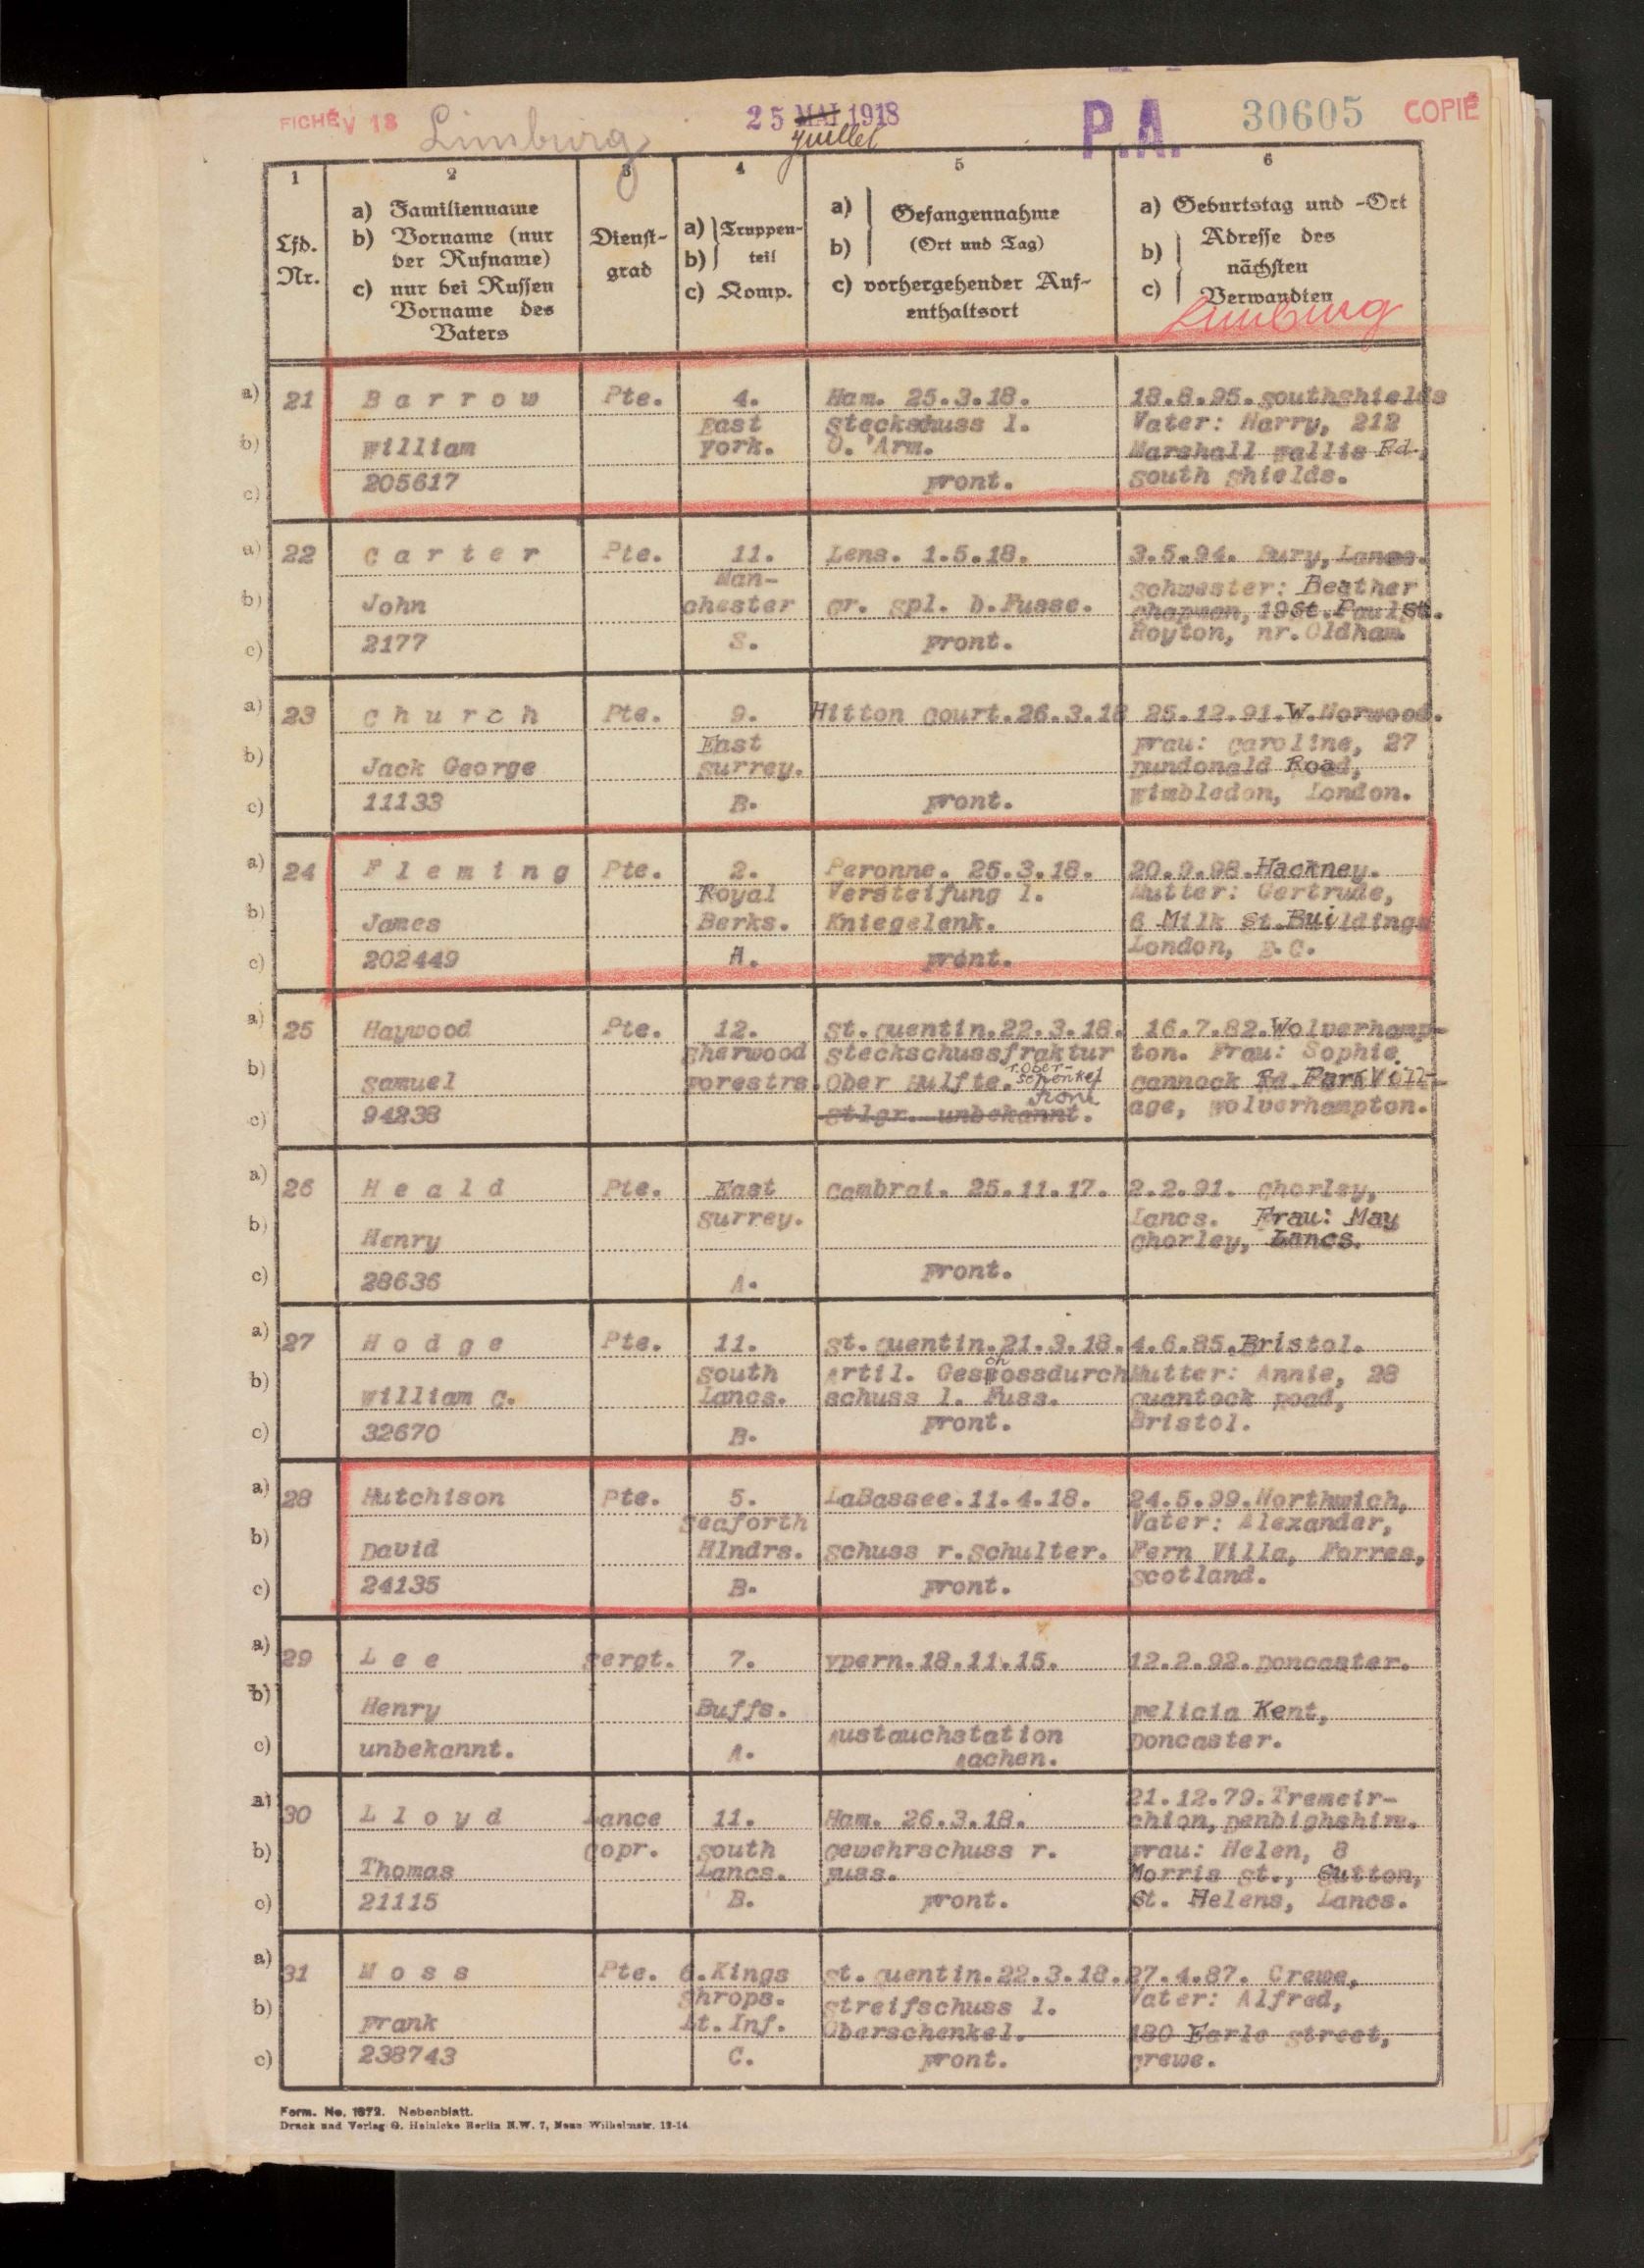 FICHÉ V 18 Limburg 25 MAI 1918 P.A. 30605 COPIE
juillet
1 2 3 4 5 6
Lfd. Nr.
a) Familienname
b) Vorname (nur
der Rufname)
c) nur bei Russen
Vorname des
Vaters
Dienst-
grad
a) Truppen-
b) teil
c) Komp.
a) Gefangennahme
b) (Ort und Tag)
c) vorhergehender Auf-
enthaltsort
a) Geburtstag und -Ort
b) Adresse des
nächsten
c) Verwandten
Limburg
a) 21 Barrow Pte. 4. Ham. 25.3.18. 18.8.95.southshields
East Steckschuss l. Vater: Harry, 212
b) William York. O.'Arm. Marshall Wallis Rd.,
c) 205617 Front. South Shields.
a) 22 Carter Pte. 11. Lens. 1.5.18. 3.5.94. Bury, Lancs.
Man- Schwester: Beather
b) John chester gr. Spl. b.Fusse. Chapman, 19 St.Paul St.
c) 2177 S. Front. Royton, nr.Oldham.
a) 23 Church Pte. 9. Hitton Court.26.3.18 25.12.91.W.Norwood.
East Frau: Caroline, 27
b) Jack George Surrey. Dundonald Road,
c) 11133 B. Front. Wimbledon, London.
a) 24 Fleming Pte. 2. Peronne. 25.3.18. 20.9.98.Hackney.
Royal Versteifung l. Mutter: Gertrude,
b) James Berks. Kniegelenk. 6 Milk St.Buildings
c) 202449 A. Front. London, E.C.
a) 25 Haywood Pte. 12. St.Quentin.22.3.18. 16.7.82.Wolverhamp-
Sherwood Steckschussfraktur ton. Frau: Sophie
b) Samuel Forestrs. Ober Hulfte. r.Ober-
schenkel Cannock Rd. Park Vill-
Front
c) 94238 Stlgr. unbekannt. age, Wolverhampton.
a) 26 Heald Pte. East Cambrai. 25.11.17. 2.2.91. Chorley,
Surrey. Lancs. Frau: May
b) Henry Chorley, Lancs.
c) 28636 A. Front.
a) 27 Hodge Pte. 11. St.Quentin.21.3.18. 4.6.85.Bristol.
South Artil. Geschossdurch Mutter: Annie, 28
b) William C. Lancs. schuss l. Fuss. Quantock Road,
c) 32670 B. Front. Bristol.
a) 28 Hutchison Pte. 5. LaBassee.11.4.18. 24.5.99.Northwich,
Seaforth Vater: Alexander,
b) David Hlndrs. Schuss r.Schulter. Fern Villa, Forres,
c) 24135 B. Front. Scotland.
a) 29 Lee Sergt. 7. Ypern.18.11.15. 12.2.92.Doncaster.
b) Henry Buffs. Felicia Kent,
Austauchstation
c) unbekannt. A. Aachen. Doncaster.
21.12.79.Tremeir-
a) 30 Lloyd Lance 11. Ham. 26.3.18. chion, Denbighshire.
b) Copr. South Gewehrschuss r. Frau: Helen, 8
Thomas Lancs. Fuss. Morris St., Sutton,
c) 21115 B. Front. St. Helens, Lancs.
a) 31 Moss Pte. 6.Kings St.Quentin.22.3.18. 27.4.87. Crewe,
b) Shrops. Streifschuss l. Vater: Alfred,
Frank Lt.Inf. Oberschenkel. 180 Earle Street,
c) 238743 C. Front. Crewe.
Form. No. 1672. Nebenblatt.
Druck und Verlag G. Heinicke Berlin N.W. 7, Neue Wilhelmstr. 12-14